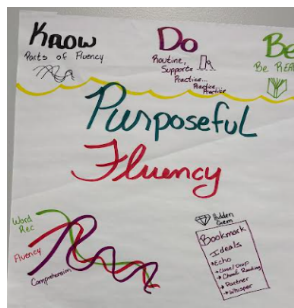 Know
Parts of Fluency
Do
Routine,
Supports
Practice...
Practice,
Practice
Be
Be REA
Purposeful
Fluency
Word
Rec
Fluency
Comprehension
Hidden
Gem
Bookmark
Ideals
•Echo
•Choral Reading
•Partner
•Whisper